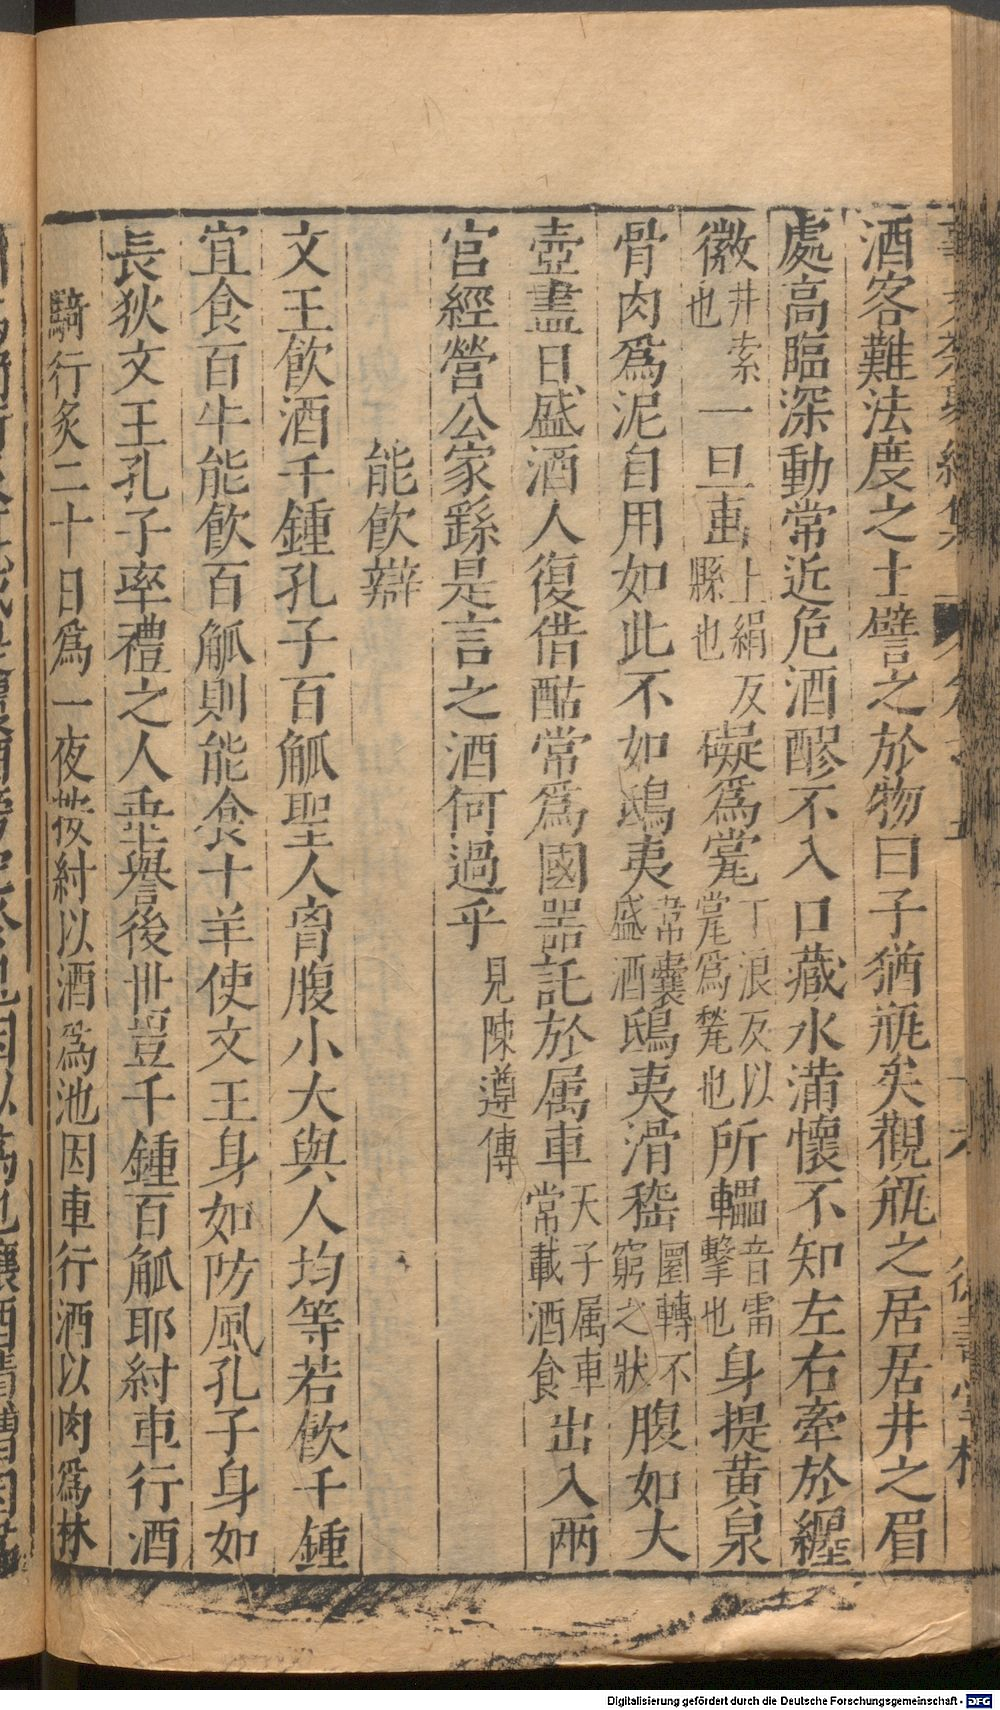 酒客難法度之士譬之於物曰子猶瓶矣觀瓶之居居井之眉
處高臨深動常近危酒醪不入口藏水滿懷不知左右牽於纆
徽井索也一旦叀上絹反縣也礙爲瓽丁浪反以瓽爲甃也所轠音雷擊也身提黃泉
骨肉爲泥自用如此不如鴟夷韋囊盛酒鴟夷滑稽圜轉不窮之狀腹如大
壺盡日盛酒人復借酤常爲國噐託於属車天子属車常載酒食出入兩
官經營公家繇是言之酒何過乎見陳遵傳
能飲辯
文王飲酒千鍾孔子百觚聖人胷腹小大與人均等若飲千鍾
宜食百牛能飲百觚則能食十羊使文王身如防風孔子身如
長狄文王孔子率禮之人垂譽後世豈千鍾百觚耶紂車行酒
騎行炙二十日爲一夜按紂以酒爲池因車行酒以肉爲林
Digitalisierung gefördert durch die Deutsche Forschungsgemeinschaft - DFG